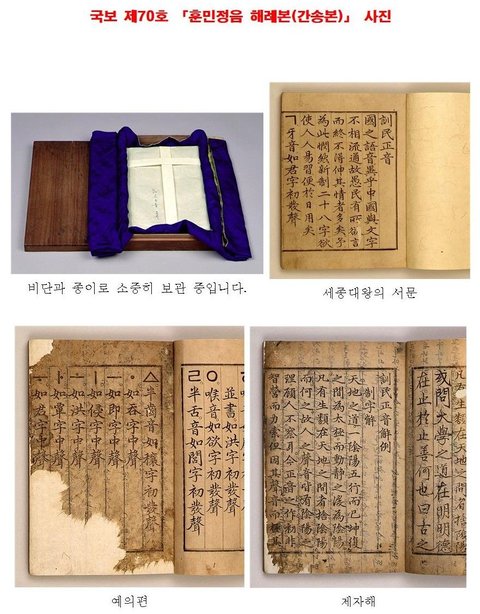 국보 제70호 「훈민정음 해례본(간송본)」 사진
訓民正音
國之語音異乎中國與文字
不相流通故愚民有所欲言
而終不得伸其情者多矣予
為此憫然新制二十八字欲
使人人易習便於日用矣
ㄱ牙音如君字初發聲
비단과 종이로 소중히 보관 중입니다.
세종대왕의 서문
並書如洪字初發聲
ㅇ喉音如欲字初發聲
ㄹ半舌音如閭字初發聲
ㅿ半齒音如穰字初發聲
ㆍ如呑字中聲
ㅡ如即字中聲
ㅣ如侵字中聲
ㅗ如洪字中聲
ㅏ如覃字中聲
ㅜ如君字中聲
凡有生類在天地之間者捨陰陽
或問大學之道在明明德
在止於止善何也曰古之
訓民正音解例
制字解
天地之道一陰陽五行而已坤復
之間為太極而動靜之後為陰陽
凡有生類在天地之間者捨陰陽
而何之故人之聲音皆有陰陽之
理顧人不察耳今正音之作初非
智營而力索但因其聲音而
예의편
제자해